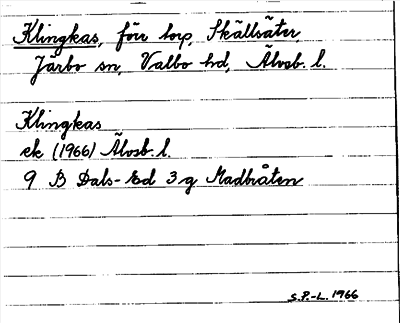 Klingkas, förr torp, Skällsäter,
Järbo sn, Valbo hd, Älvsb. l.
Klingkas
ek (1966) Älvsb. l.
9 B Dals-Ed 3 g Madbråten
S.P.-L. 1966